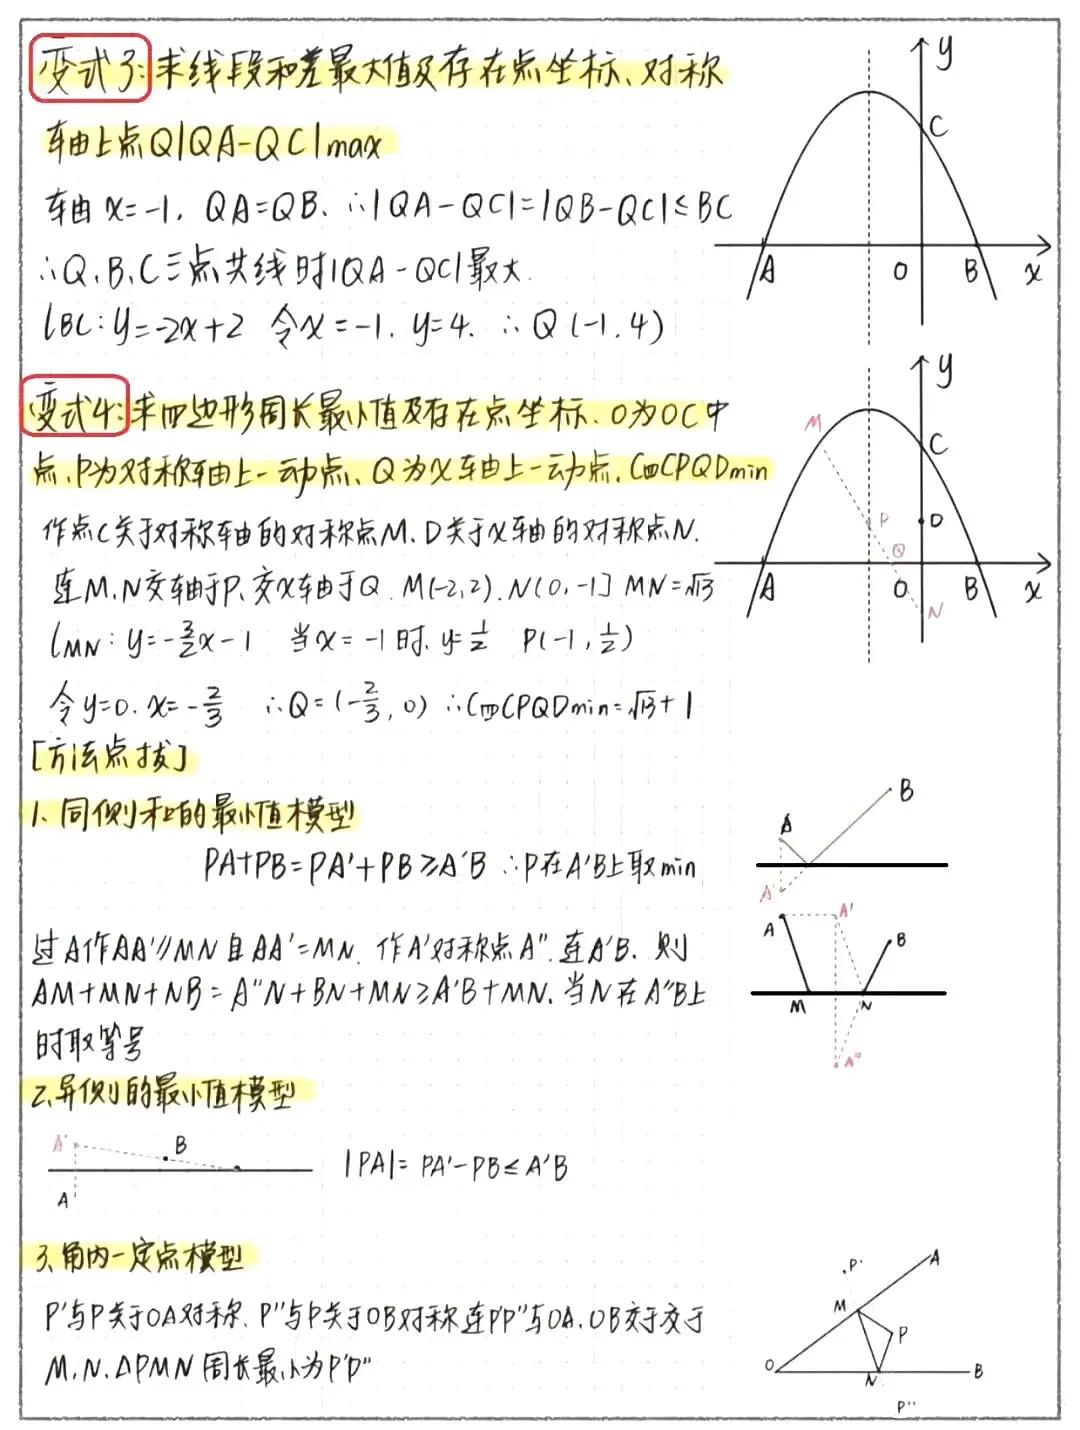 变式3:求线段和差最大值及存在点坐标、对称
轴上点Q|QA-QC|max
轴x=-1. QA=QB. ∴|QA-QC|=|QB-QC|≤BC
∴Q.B.C三点共线时|QA-QC|最大.
lBC:y=-2x+2 令x=-1. y=4. ∴Q(-1.4)
y
C
A
O
B
x
变式4:求四边形周长最小值及存在点坐标.O为OC中
点.P为对称轴上一动点、Q为x轴上一动点.C四CPQDmin
作点C关于对称轴的对称点M.D关于x轴的对称点N.
连M.N交轴于P、交x轴于Q.M(-2,2).N(0,-1] MN=√13
lMN:y=-3/2x-1 当x=-1时.y=1/2 P(-1,1/2)
令y=0.x=-2/3 ∴Q=(-2/3,0) ∴C四CPQDmin=√13+1
y
M
C
P
D
Q
A
O
B
x
N
[方法点拔]
1、同侧和的最小值模型
PA+PB=PA'+PB≥A'B ∴P在A'B上取min
B
A
A'
过A作AA'∥MN且AA'=MN.作A'对称点A".连A'B.则
AM+MN+NB=A"N+BN+MN≥A'B+MN.当N在A"B上
时取等号
A
A'
B
M
N
A"
2、异侧的最小值模型
A'
B
A
|PA|=PA'-PB≤A'B
3、角内一定点模型
P'与P关于OA对称.P"与P关于OB对称连P'P"与OA.OB交于交于
M.N.△PMN周长最小为P'P"
P'
A
M
P
O
N
B
P"